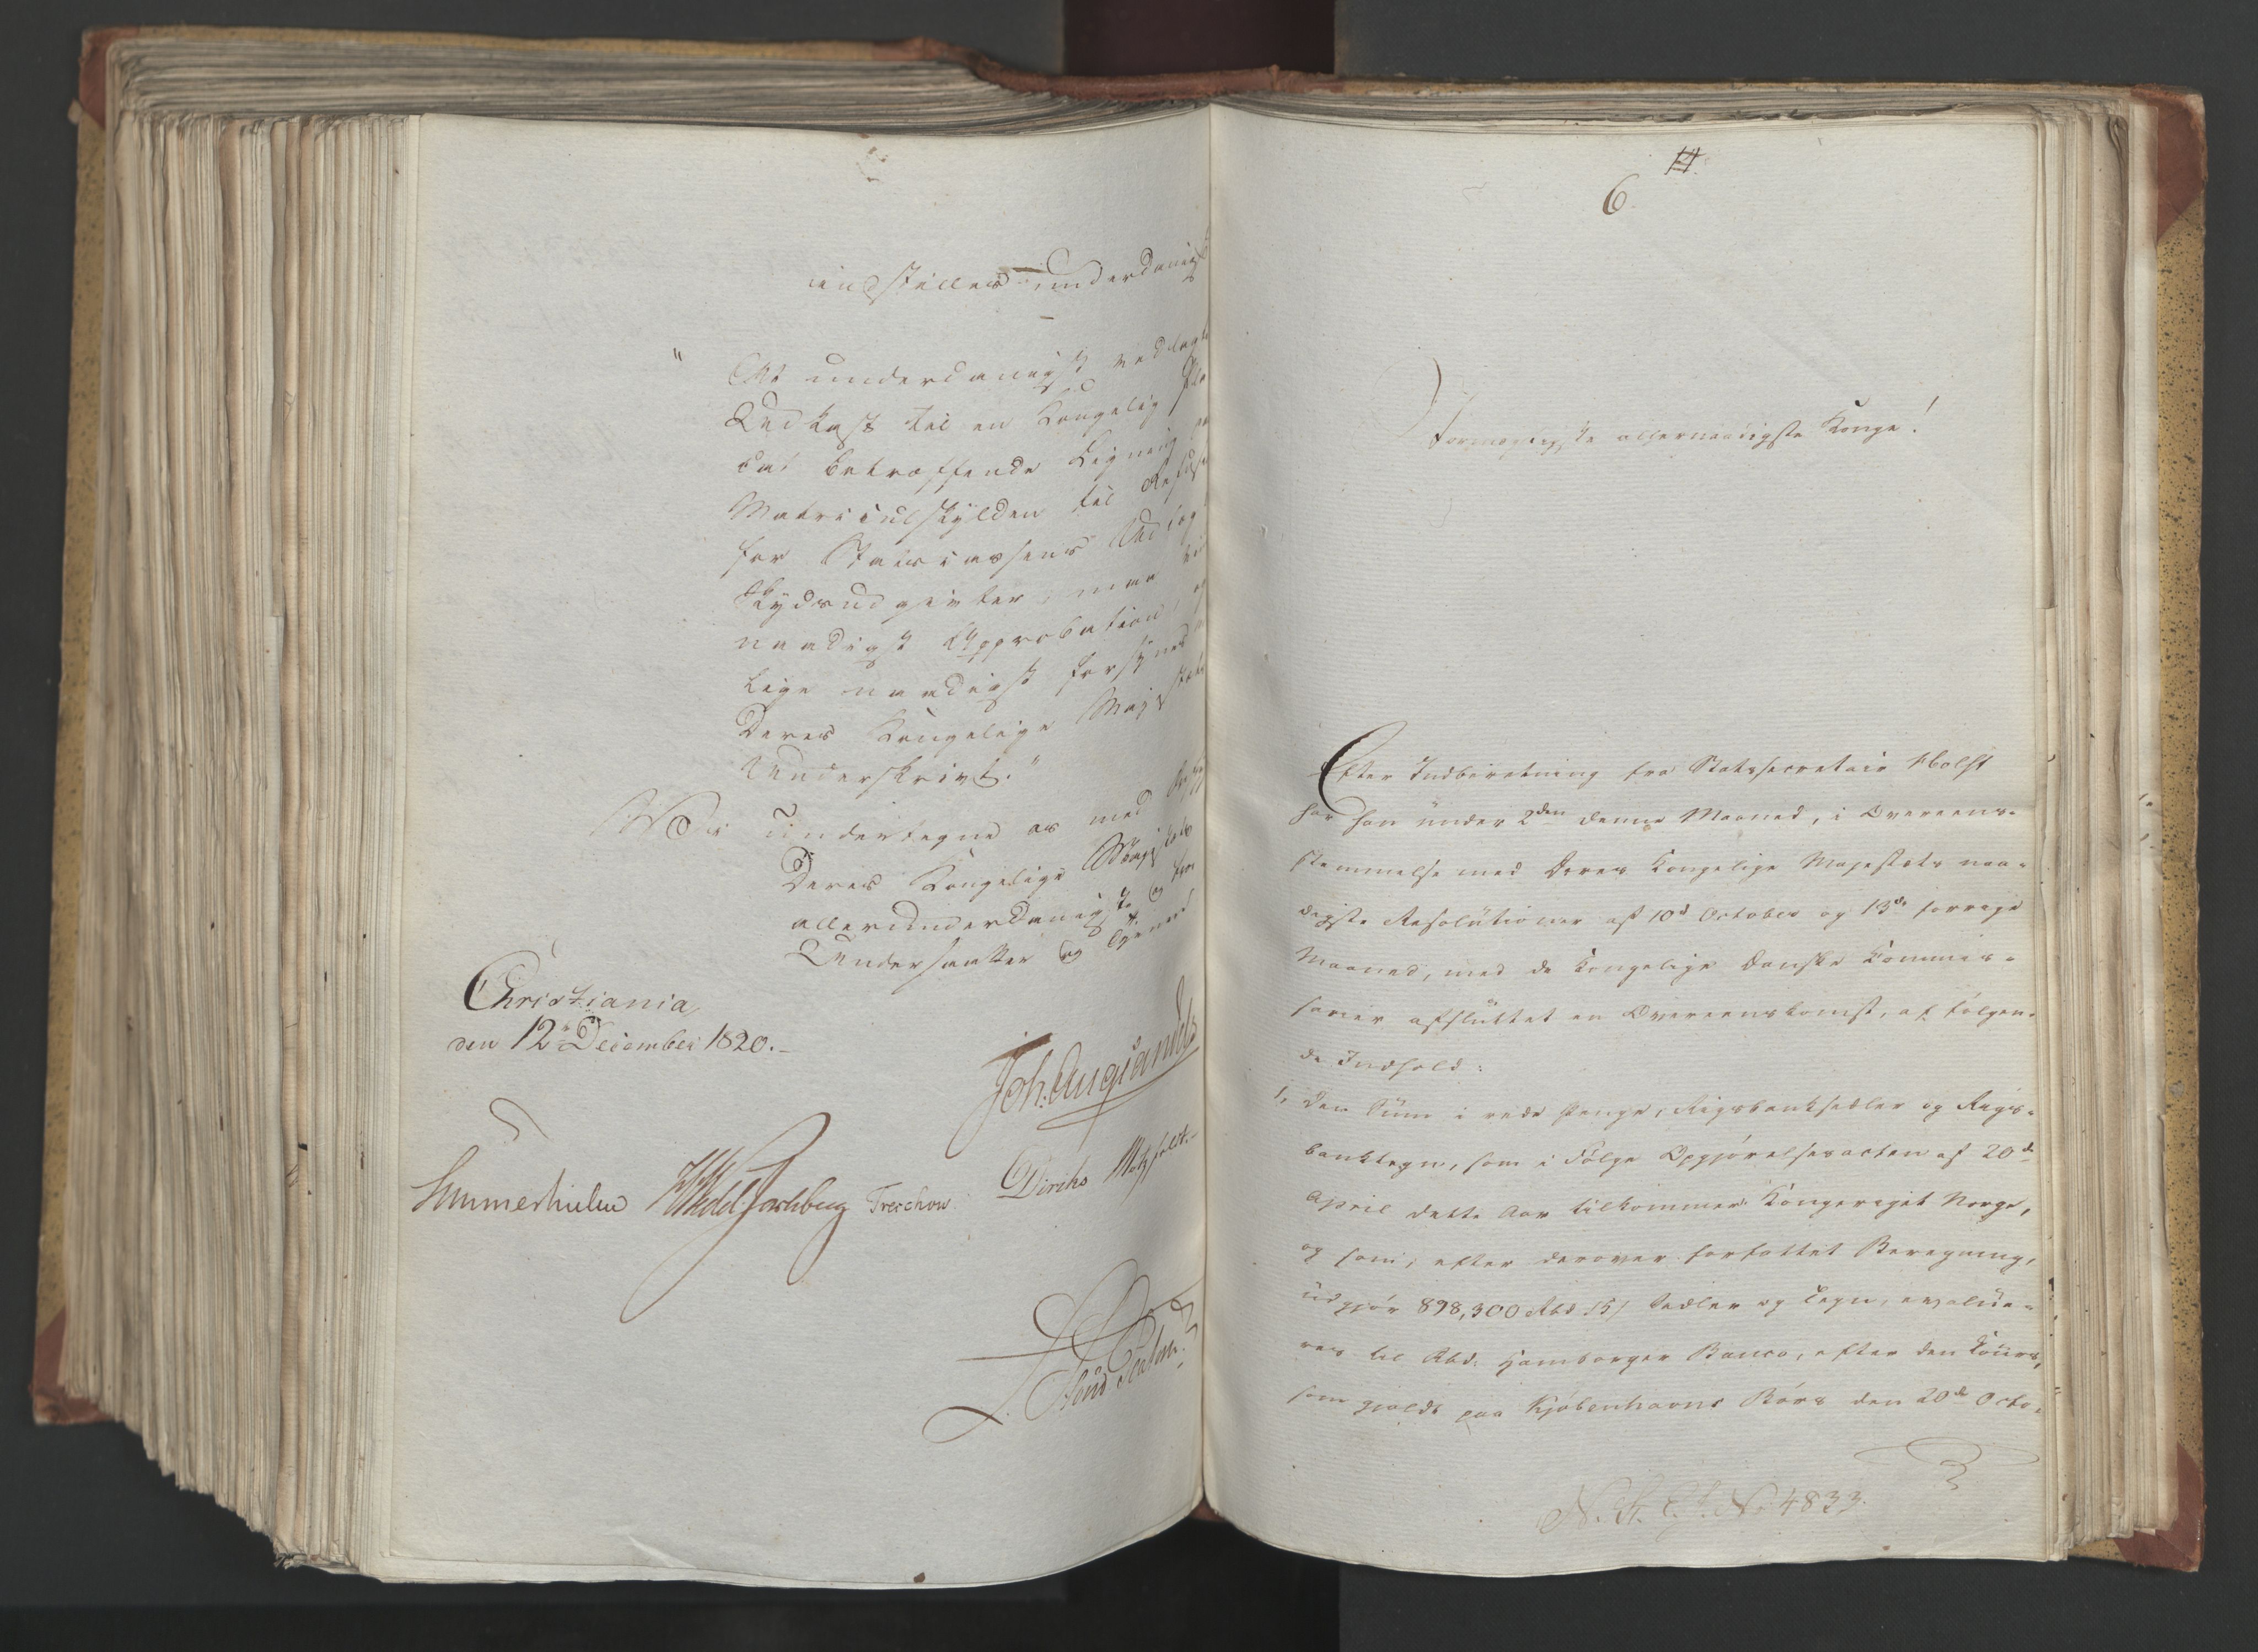 indstilles underdanigst
"At underdanigst vedlagte
Udkast til en Kongelig Pla-
cat betræffende Ligning paa
Matriculskylden til Refusion
for Statscassens Udlæg
Skydsudgivter, maa vinde
naadigst Approbation, og
lige naadigst forsynes med
Deres Kongelige Majestæts
Underskrivt."
Vi undertegne os med
Deres Kongelige Majestæts
allerunderdanigste og
Undersaatter og Tjenere
Christiania
den 12te December 1820.-
Joh. Aug. Sandels
Sommerhielm HWedel Jarlsberg Treschow
Diriks Motzfeldt.
14.
6.
Stormægtigste allernaadigste Konge!
Efter Indberetning fra Statssecretair Holst
har han under 2den denne Maaned, i Overeens-
stemmelse med Deres Kongelige Majestæts naa-
digste Resolutioner af 10de October og 13de forrige
Maaned, med de Kongelige Danske Kommis-
sairer afsluttet en Overeenskomst, af følgen-
de Indhold:
1, Den Sum i rede Penge, Rigsbanksedler og Rigs-
banktegn, som i Følge Opgjørelsesacten af 20de
April dette Aar tilkommer Kongeriget Norge,
og som, efter derover forfattet Beregning,
udgjør 898,300 Rbd 15/ Sedler og Tegn, evalue-
res til Rbd: Hamborger Banco, efter den Cours,
som gjældt paa Kjøbenhavns Børs den 20de Octo-
No 4833.